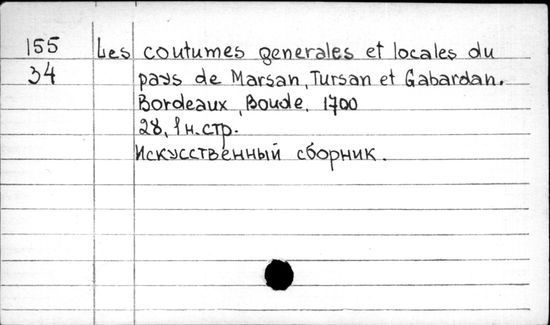 155 Les coutumes generales et locales du
34 pays de Marsan, Tursan et Gabardan.
Bordeaux, Boude, 1700
28, 1 н.стр.
Искусственный сборник.